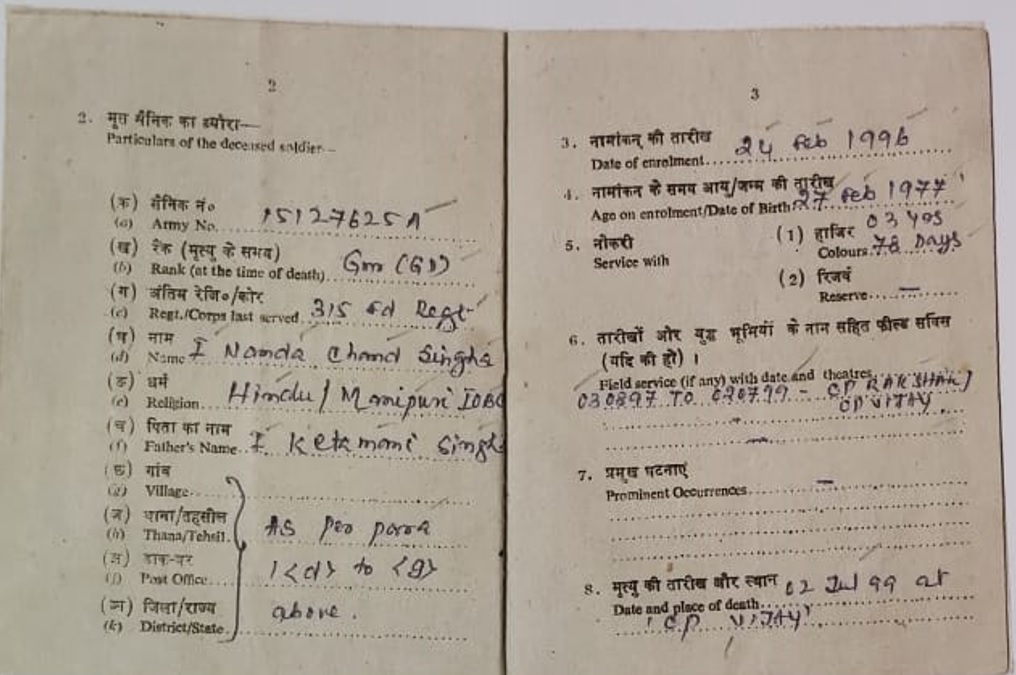 2
2. मृत सैनिक का ब्योरा—
Particulars of the deceased soldier—
(क) सैनिक नं०
(a) Army No. 15127625A
(ख) रैंक (मृत्यु के समय)
(b) Rank (at the time of death) Gnr (GD)
(ग) अंतिम रेजि०/कोर
(c) Regt./Corps last served 315 Fd Regt
(घ) नाम
(d) Name I Nanda Chand Singha
(ङ) धर्म
(e) Religion Hindu/Manipuri (OBC
(च) पिता का नाम
(f) Father's Name I Ketkmani Singh
(छ) गांव
(g) Village
(ज) थाना/तहसील
(h) Thana/Tehsil. As per para
डाक-घर
(j) Post Office 1<d> to <g>
(ञ) जिला/राज्य
(k) District/State above.
3
3. नामांकन की तारीख
Date of enrolment 24 Feb 1996
4. नामांकन के समय आयु/जन्म की तारीख
Age on enrolment/Date of Birth 27 Feb 1977
5. नौकरी (1) हाजिर 03 yrs
Service with Colours 78 Days
(2) रिजर्व
Reserve —
6. तारीखों और युद्ध भूमियों के नाम सहित फील्ड सर्विस
(यदि की हो) ।
Field service (if any) with date and theatres
030897 TO 020799 - OP RAKSHAK/
OP VIJAY
7. प्रमुख घटनाएं
Prominent Occurrences —
8. मृत्यु की तारीख और स्थान
Date and place of death 02 Jul 99 at
'OP VIJAY'